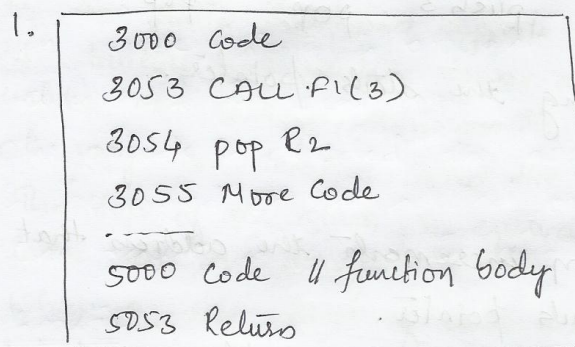 1.
3000 Code
3053 CALL F1(3)
3054 pop R2
3055 More Code
-------
5000 Code // function body
5053 Return